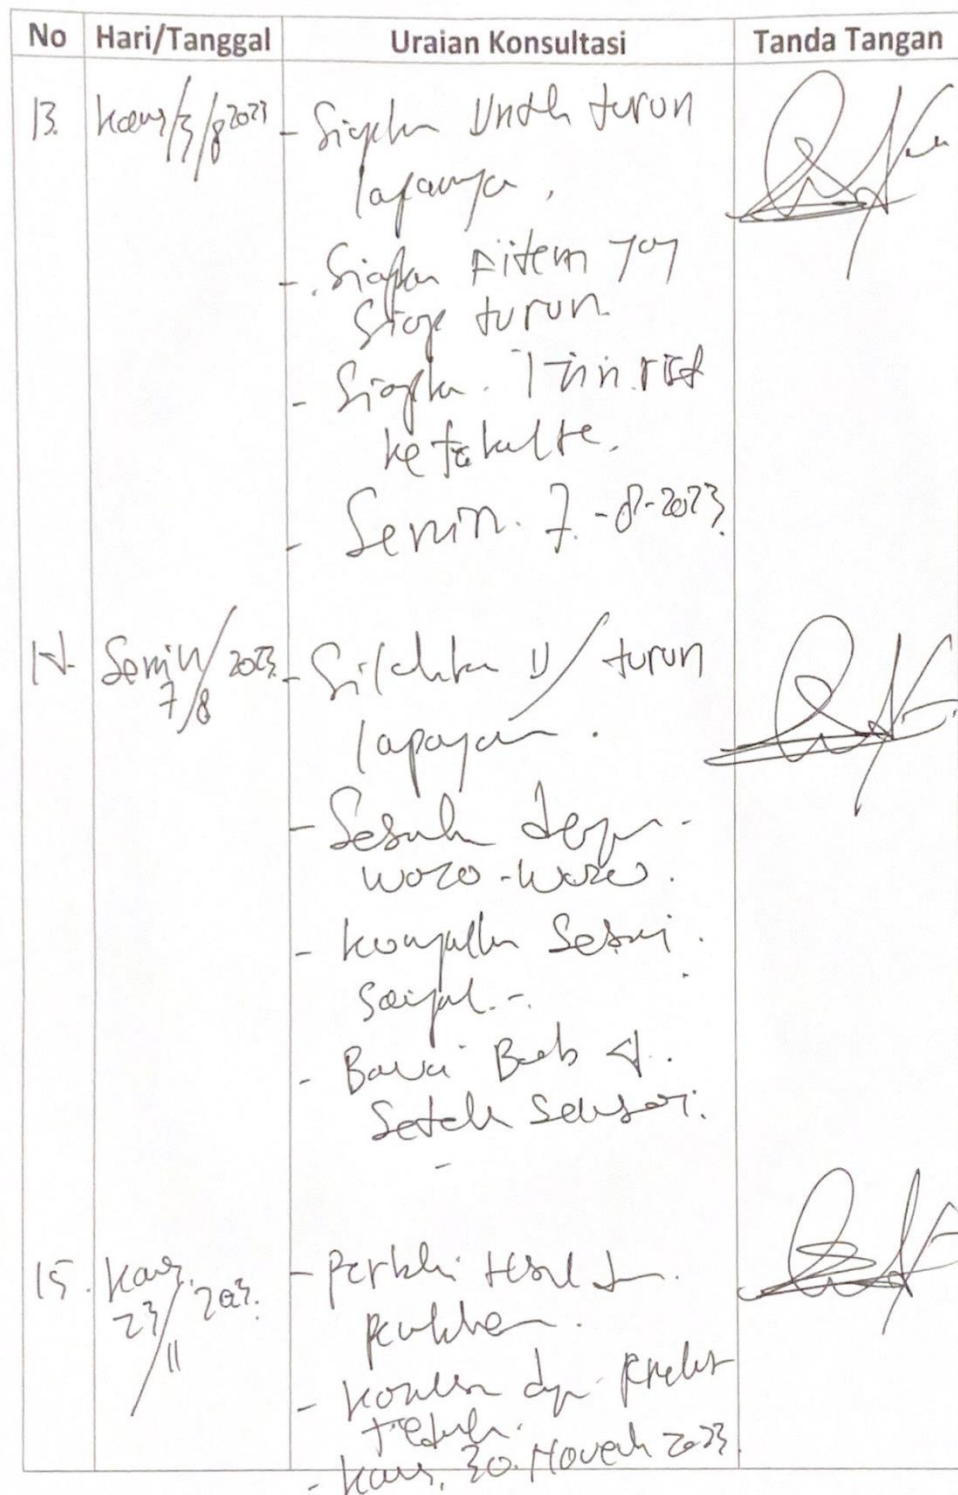 No Hari/Tanggal Uraian Konsultasi Tanda Tangan
13. Kamis/3/8 2023 - Siapkan Untuk turun
lapangan.
- Siapkan Aitem yang
Siap turun.
- Siapkan Izin riset
ke fakultas.
- Senin. 7-8-2023.
14. Senin/7/8 2023. - Silahkan U/ turun
lapangan.
- Sesuai dengan
- Kumpulkan Sesuai
- Bawa Bab 4.
Setelah Selesai.
15. Kamis. 23/11 2023. - Perbaiki Hasil dan
- dgn
- Kamis, 30. November 2023